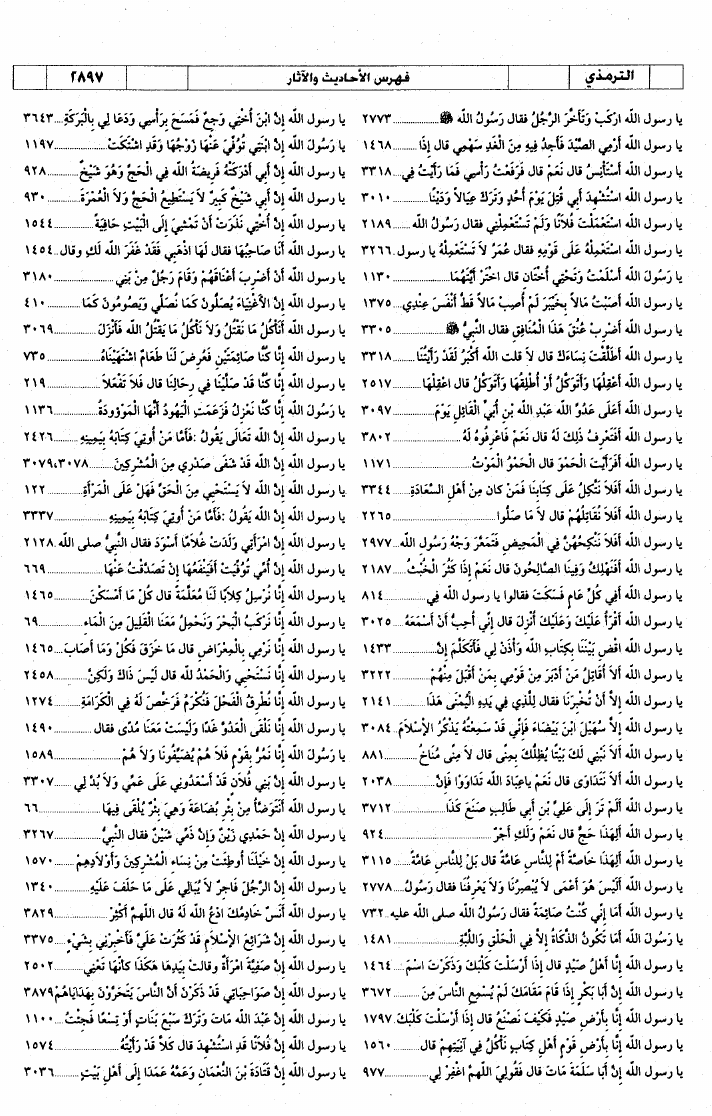 الترمذي
فهرس الأحاديث والآثار
٢٨٩٧
يا رسول الله ارْكَبْ وَتَأَخَّرَ الرَّجُلُ فقال رَسُولُ الله ﷺ ٢٧٧٣
يا رسول الله أَرْمِي الصَّيْدَ فَأَجِدُ فِيهِ مِنَ الْغَدِ سَهْمِي قال إذَا ١٤٦٨
يا رسول الله أَسْتَأْنِسُ قال نَعَمْ قال فَرَفَعْتُ رَأْسِي فَمَا رَأَيْتُ فِي ٣٣١٨
يا رسول الله اسْتُشْهِدَ أَبِي قُتِلَ يَوْمَ أُحُدٍ وَتَرَكَ عِيَالاً وَدَيْنًا ٣٠١٠
يا رسول الله اسْتَعْمَلْتَ فُلَانًا وَلَمْ تَسْتَعْمِلْنِي فقال رَسُولُ الله ٢١٨٩
يا رسول الله اسْتَعْمِلْهُ عَلَى قَوْمِهِ فقال عُمَرُ لاَ تَسْتَعْمِلْهُ يا رسول ٣٢٦٦
يا رَسُولَ الله أَسْلَمْتُ وَتَحْتِي أُخْتَانِ قال اخْتَرْ أَيَّتَهُمَا ١١٣٠
يا رسول الله أَصَبْتُ مَالاً بِخَيْبَرَ لَمْ أُصِبْ مَالاً قَطُّ أَنْفَسَ عِنْدِي ١٣٧٥
يا رسول الله أَضْرِبُ عُنُقَ هَذَا الْمُنَافِقِ فقال النبيُّ ﷺ ٣٣٠٥
يا رسول الله أَطَلَّقْتَ نِسَاءَكَ قال لا قلت الله أَكْبَرُ لَقَدْ رَأَيْتُنَا ٣٣١٨
يا رسول الله أَعْقِلُهَا وَأَتَوَكَّلُ أَوْ أُطْلِقُهَا وَأَتَوَكَّلُ قال اعْقِلْهَا ٢٥١٧
يا رسول الله أَعَلَى عَدُوِّ الله عَبْدِ الله بْنِ أُبَيٍّ الْقَائِلِ يَوْمَ ٣٠٩٧
يا رسول الله أَفَتَعْرِفُ ذَلِكَ لَهُ قال نَعَمْ فَاعْرِفُوهُ لَهُ ٣٨٠٢
يا رسول الله أَفَرَأَيْتَ الْحَمْوَ قال الْحَمْوُ الْمَوْتُ ١١٧١
يا رسول الله أَفَلاَ نَتَّكِلُ عَلَى كِتَابِنَا فَمَنْ كان مِنْ أَهْلِ السَّعَادَةِ ٣٣٤٤
يا رسول الله أَفَلاَ نُقَاتِلُهُمْ قال لاَ مَا صَلَّوْا ٢٢٦٥
يا رسول الله أَفَلاَ نَنْكِحُهُنَّ فِي الْمَحِيضِ فَتَمَعَّرَ وَجْهُ رَسُولِ الله ٢٩٧٧
يا رسول الله أَفَنَهْلِكُ وَفِينَا الصَّالِحُونَ قال نَعَمْ إذَا كَثُرَ الْخَبَثُ ٢١٨٧
يا رسول الله أَفِي كُلِّ عَامٍ فَسَكَتَ فقالوا يا رسول الله فِي ٨١٤
يا رسول الله أَقْرَأُ عَلَيْكَ وَعَلَيْكَ أُنْزِلَ قال إنِّي أُحِبُّ أَنْ أَسْمَعَهُ ٣٠٢٥
يا رسول الله اقْضِ بَيْنَنَا بِكِتَابِ الله وَأْذَنْ لِي فَأَتَكَلَّمَ إنَّ ١٤٣٣
يا رسول الله أَلاَ أُقَاتِلُ مَنْ أَدْبَرَ مِنْ قَوْمِي بِمَنْ أَقْبَلَ مِنْهُمْ ٣٢٢٢
يا رسول الله إلاَّ أَنْ تُخْبِرَنَا فقال لِلَّذِي فِي يَدِهِ الْيُمْنَى هَذَا ٢١٤١
يا رسول الله إلاَّ سُهَيْلَ ابْنَ بَيْضَاءَ فَإِنِّي قَدْ سَمِعْتُهُ يَذْكُرُ الإِسْلاَمَ ٣٠٨٤
يا رسول الله أَلاَ نَبْنِي لَكَ بَيْتًا يُظِلُّكَ بِمِنًى قال لاَ مِنًى مُنَاخُ ٨٨١
يا رسول الله أَلاَ نَتَدَاوَى قال نَعَمْ يَاعِبَادَ الله تَدَاوَوْا فَإِنَّ ٢٠٣٨
يا رسول الله أَلَمْ تَرَ إلَى عَلِيِّ بْنِ أَبِي طالِبٍ صَنَعَ كَذَا ٣٧١٢
يا رسول الله أَلِهَذَا حَجٌّ قال نَعَمْ وَلَكِ أَجْرٌ ٩٢٤
يا رسول الله أَلِهَذَا خَاصَّةً أَمْ لِلنَّاسِ عَامَّةً قال بَلْ لِلنَّاسِ عَامَّةً ٣١١٥
يا رسول الله أَلَيْسَ هُوَ أَعْمَى لاَ يُبْصِرُنَا وَلاَ يَعْرِفُنَا فقال رَسُولُ ٢٧٧٨
يا رسول الله أَمَا إنِّي كُنْتُ صَائِمَةً فقال رَسُولُ الله صلى الله عليه ٧٣٢
يا رَسُولَ الله أَمَا تَكُونُ الذَّكَاةُ إلاَّ فِي الْحَلْقِ وَاللَّبَّةِ ١٤٨١
يا رسول الله إنَّا أَهْلُ صَيْدٍ قال إذَا أَرْسَلْتَ كَلْبَكَ وَذَكَرْتَ اسْمَ ١٤٦٤
يا رسول الله إنَّ أَبَا بَكْرٍ إذَا قَامَ مَقَامَكَ لَمْ يُسْمِعِ النَّاسَ مِنَ ٣٦٧٢
يا رسول الله إنَّا بِأَرْضِ صَيْدٍ فَكَيْفَ نَصْنَعُ قال إذَا أَرْسَلْتَ كَلْبَكَ ١٧٩٧
يا رسول الله إنَّا بِأَرْضِ قَوْمٍ أَهْلِ كِتَابٍ نَأْكُلُ فِي آنِيَتِهِمْ قال ١٥٦٠
يا رسول الله إنَّ أَبَا سَلَمَةَ مَاتَ قال فَقُولِيَ اللَّهمَّ اغْفِرْ لِي ٩٧٧
يا رسول الله إنَّ ابْنَ أُخْتِي وَجِعٌ فَمَسَحَ بِرَأْسِي وَدَعَا لِي بِالْبَرَكَةِ ٣٦٤٣
يا رَسُولَ الله إنَّ ابْنَتِي تُوُفِّيَ عَنْهَا زَوْجُهَا وَقَدِ اشْتَكَتْ ١١٩٧
يا رسول الله إنَّ أَبِي أَدْرَكَتْهُ فَرِيضَةُ الله فِي الْحَجِّ وَهُوَ شَيْخٌ ٩٢٨
يا رسول الله إنَّ أَبِي شَيْخٌ كَبِيرٌ لاَ يَسْتَطِيعُ الْحَجَّ وَلاَ الْعُمْرَةَ ٩٣٠
يا رسول الله إنَّ أُخْتِي نَذَرَتْ أَنْ تَمْشِيَ إلَى الْبَيْتِ حَافِيَةً ١٥٤٤
يا رسول الله أَنَا صَاحِبُهَا فقال لَهَا اذْهَبِي فَقَدْ غَفَرَ الله لَكِ وقال ١٤٥٤
يا رسول الله أَنْ أَضْرِبَ أَعْنَاقَهُمْ وَقَامَ رَجُلٌ مِنْ بَنِي ٣١٨٠
يا رسول الله إنَّ الأَغْنِيَاءَ يُصَلُّونَ كَمَا نُصَلِّي وَيَصُومُونَ كَمَا ٤١٠
يا رسول الله أَنَأْكُلُ مَا نَقْتُلُ وَلاَ نَأْكُلُ مَا يَقْتُلُ الله فَأَنْزَلَ ٣٠٦٩
يا رسول الله إنَّا كُنَّا صَائِمَتَيْنِ فَعُرِضَ لَنَا طَعَامٌ اشْتَهَيْنَاهُ ٧٣٥
يا رسول الله إنَّا كُنَّا قَدْ صَلَّيْنَا فِي رِحَالِنَا قال فَلاَ تَفْعَلاَ ٢١٩
يا رَسُولَ الله إنَّا كُنَّا نَعْزِلُ فَزَعَمَتِ الْيَهُودُ أَنَّهَا الْمَوْؤُودَةُ ١١٣٦
يا رسول الله إنَّ الله تَعَالَى يَقُولُ :فَأَمَّا مَنْ أُوتِيَ كِتَابَهُ بِيَمِينِهِ ٢٤٢٦
يا رسول الله إنَّ الله قَدْ شَفَى صَدْرِي مِنَ الْمُشْرِكِينَ ٣٠٧٩،٣٠٧٨
يا رسول الله إنَّ الله لاَ يَسْتَحْيِي مِنَ الْحَقِّ فَهَلْ عَلَى الْمَرْأَةِ ١٢٢
يا رسول الله إنَّ الله يَقُولُ :فَأَمَّا مَنْ أُوتِيَ كِتَابَهُ بِيَمِينِهِ ٣٣٣٧
يا رسول الله إنَّ امْرَأَتِي وَلَدَتْ غُلاَمًا أَسْوَدَ فقال النبيُّ صلى الله ٢١٢٨
يا رسول الله إنَّ أُمِّي تُوُفِّيَتْ أَفَيَنْفَعُهَا إنْ تَصَدَّقْتُ عَنْهَا ٦٦٩
يا رسول الله إنَّا نُرْسِلُ كِلاَبًا لَنَا مُعَلَّمَةً قال كُلْ مَا أَمْسَكْنَ ١٤٦٥
يا رسول الله إنَّا نَرْكَبُ الْبَحْرَ وَنَحْمِلُ مَعَنَا الْقَلِيلَ مِنَ الْمَاءِ ٦٩
يا رسول الله إنَّا نَرْمِي بِالْمِعْرَاضِ قال مَا خَزَقَ فَكُلْ وَمَا أَصَابَ ١٤٦٥
يا رسول الله إنَّا نَسْتَحْيِي وَالْحَمْدُ لله قال لَيْسَ ذَاكَ وَلَكِنَّ ٢٤٥٨
يا رسول الله إنَّا نُطْرِقُ الْفَحْلَ فَنُكْرَمُ فَرَخَّصَ لَهُ فِي الْكَرَامَةِ ١٢٧٤
يا رسول الله إنَّا نَلْقَى الْعَدُوَّ غَدًا وَلَيْسَتْ مَعَنَا مُدًى فقال ١٤٩٠
يا رَسُولَ الله إنَّا نَمُرُّ بِقَوْمٍ فَلاَ هُمْ يُضَيِّفُونَا وَلاَ هُمْ ١٥٨٩
يا رسول الله إنَّ بَنِي فُلاَنٍ قَدْ أَسْعَدُونِي عَلَى عَمِّي وَلاَ بُدَّ لِي ٣٣٠٧
يا رسول الله أَنَتَوَضَّأُ مِنْ بِئْرِ بُضَاعَةَ وَهِيَ بِئْرٌ يُلْقَى فِيهَا ٦٦
يا رسول الله إنَّ حَمْدِي زَيْنٌ وَإنَّ ذَمِّي شَيْنٌ فقال النبيُّ ٣٢٦٧
يا رسول الله إنَّ خَيْلَنَا أَوْطَئَتْ مِنْ نِسَاءِ الْمُشْرِكِينَ وَأَوْلاَدِهِمْ ١٥٧٠
يا رسول الله إنَّ الرَّجُلَ فَاجِرٌ لاَ يُبَالِي عَلَى مَا حَلَفَ عَلَيْهِ ١٣٤٠
يا رسول الله أَنَسٌ خَادِمُكَ ادْعُ الله لَهُ قال اللَّهمَّ أَكْثِرْ ٣٨٢٩
يا رسول الله إنَّ شَرَائِعَ الإِسْلاَمِ قَدْ كَثُرَتْ عَلَيَّ فَأَخْبِرْنِي بِشَيْءٍ ٣٣٧٥
يا رسول الله إنَّ صَفِيَّةَ امْرَأَةٌ وقالت بِيَدِهَا هَكَذَا كَأَنَّهَا تَعْنِي ٢٥٠٢
يا رسول الله إنَّ صَوَاحِبَاتِي قَدْ ذَكَرْنَ أَنَّ النَّاسَ يَتَحَرَّوْنَ بِهَدَايَاهُمْ ٣٨٧٩
يا رسول الله إنَّ عَبْدَ الله مَاتَ وَتَرَكَ سَبْعَ بَنَاتٍ أَوْ تِسْعًا فَجِئْتُ ١١٠٠
يا رسول الله إنَّ فُلاَنًا قَدِ اسْتُشْهِدَ قال كَلاَّ قَدْ رَأَيْتُهُ ١٥٧٤
يا رسول الله إنَّ قَتَادَةَ بْنَ النُّعْمَانِ وَعَمَّهُ عَمَدَا إلَى أَهْلِ بَيْتٍ ٣٠٣٦